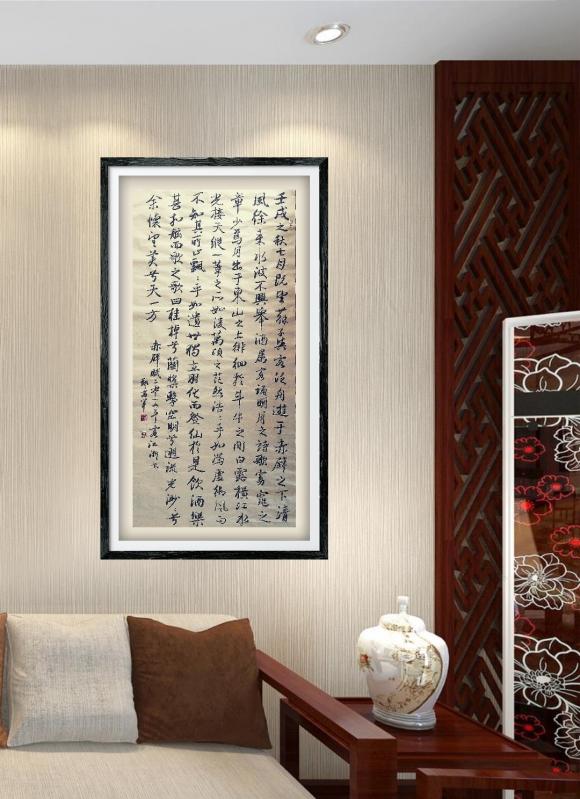 壬戌之秋七月既望蘇子與客泛舟遊于赤壁之下清
風徐來水波不興舉酒屬客誦明月之詩歌窈窕之
章少焉月出于東山之上徘徊於斗牛之間白露橫江水
光接天縱一葦之所如凌萬頃之茫然浩〻乎如馮虛御風而
不知其所止飄〻乎如遺世獨立羽化而登仙於是飲酒樂
甚扣舷而歌之歌曰桂棹兮蘭槳擊空明兮溯流光渺〻兮
余懷望美兮天一方
赤壁賦二零一五年